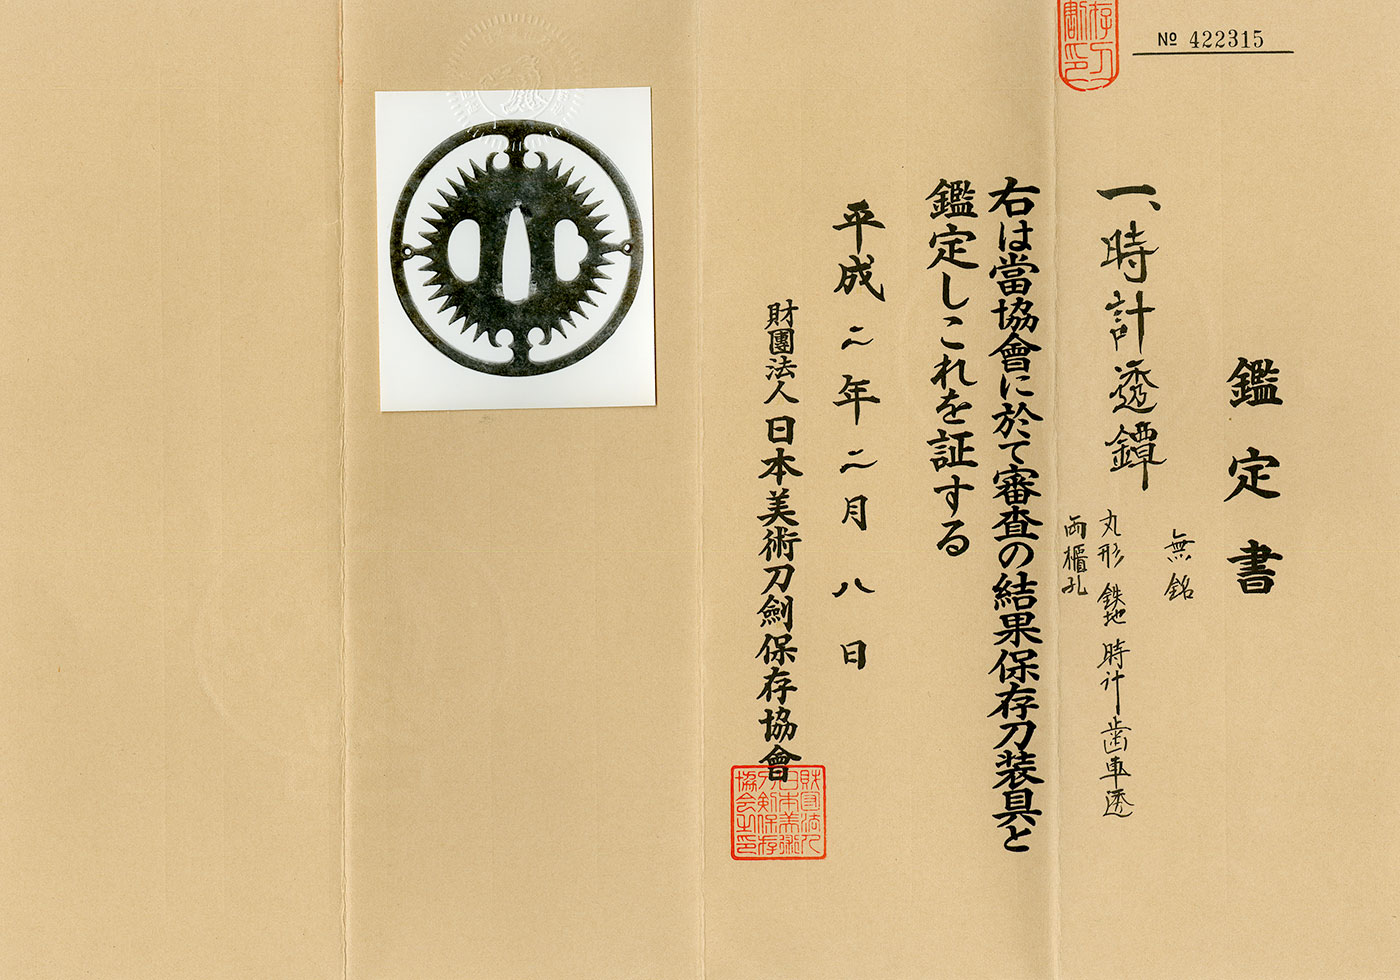 № 422315
鑑定書
一、時計透鐔
無銘
丸形 鉄地 時计歯車透
両櫃孔
右は當協會に於て審査の結果保存刀装具と
鑑定しこれを証する
平成二年二月八日
財團法人日本美術刀劍保存協會
財団法人
日本美術
刀剣保存
協会之印